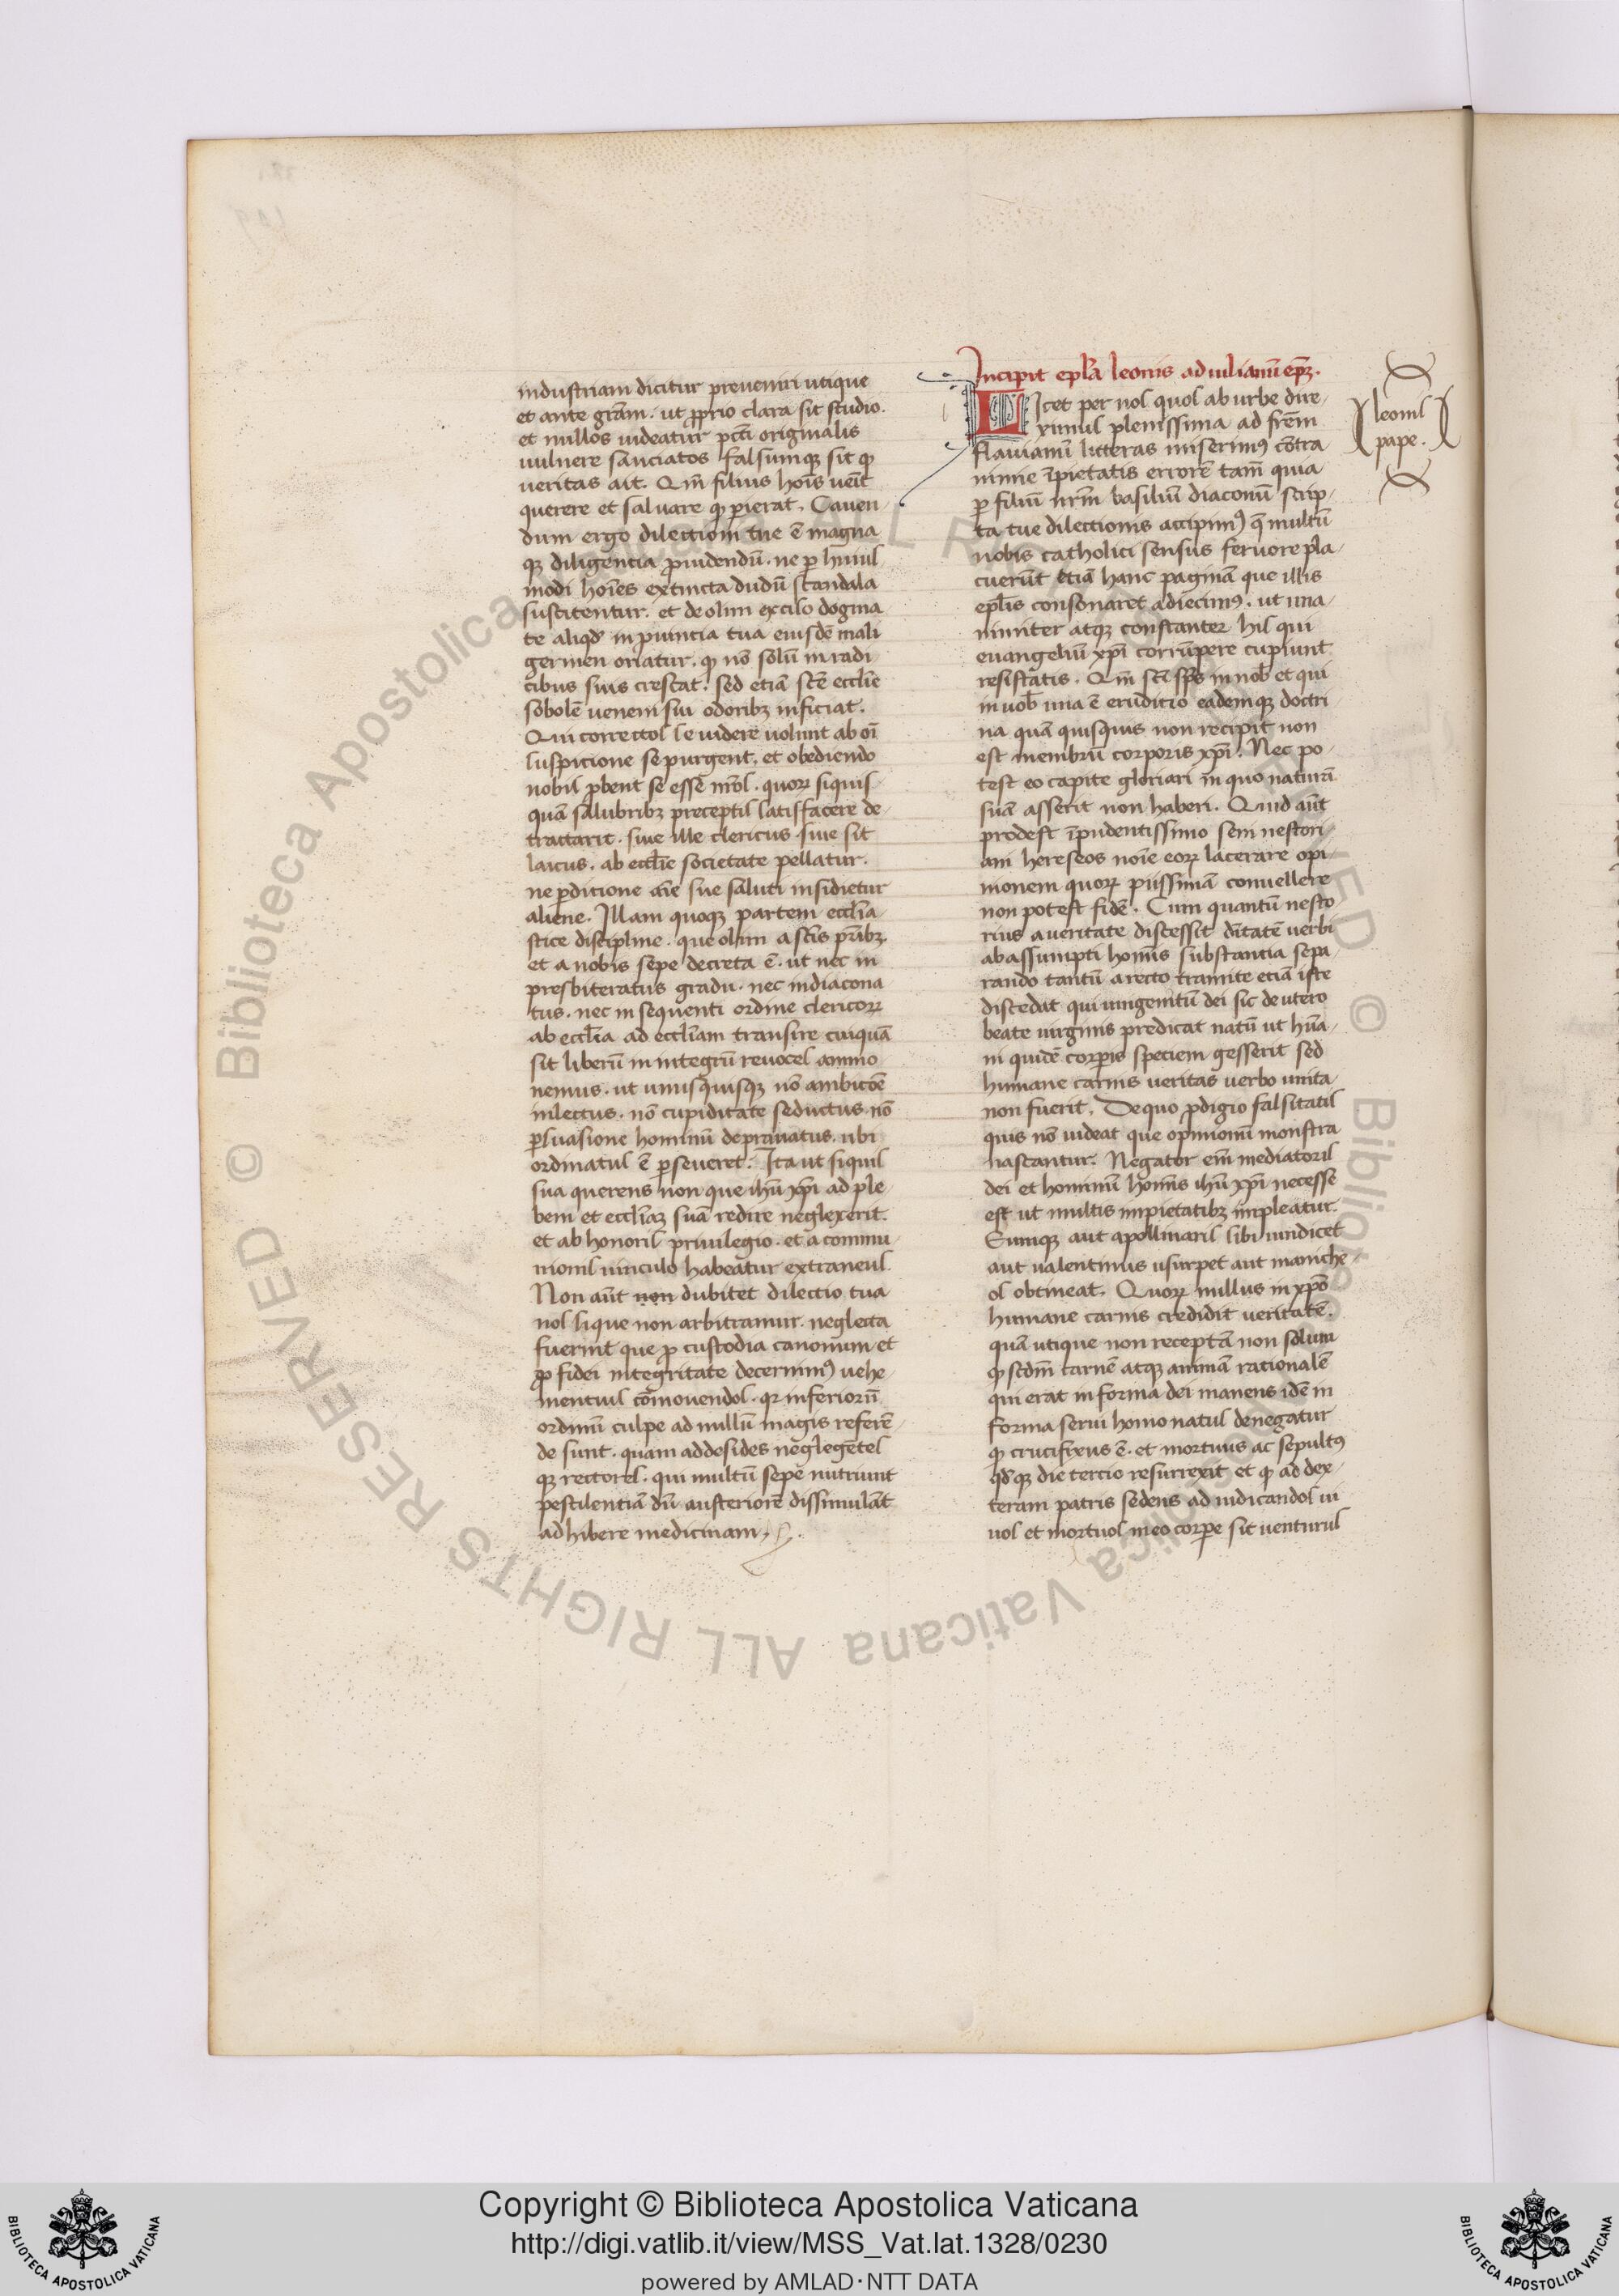 industriam dicitur preveniri utique
et ante grām. ut ꝓprio clara sit studio.
et nullos uideatur pcti originalis
uulnere sanciatos falsumqꝫ sit ꝙ
veritas ait. Qm̄ filius hoīs ueīt
querere et saluare ꝙ pierat. Cauen-
dum ergo dilectioni tue ē magna
qꝫ diligentia ꝓuidendū. ne ꝑ huius-
modi hoīes extincta dudū scandala
suscitentur. et de olim exciso dogma
te aliqd in ꝓuincia tua eiusdē mali
germen oriatur. ꝙ nō solū in radi
cibus suis crescat. sed etiā scē ecclīe
sobolē ueneni sui odoribꝫ inficiat.
Qui correctos se uidere uolunt ab oī
suspicione se purgent. et obediendo
nobis ꝓbent se esse nr̄os. quoꝝ siquis-
quā salubribꝫ preceptis satisfacere de-
tractarit. siue ille clericus siue sit
laicus. ab ecclīe societate pellatur.
ne ꝑditione aīe sue saluti insidietur
aliene. Illam quoqꝫ partem ecclīa-
stice discipline. que olim a scīs pr̄ibꝫ.
et a nobis sepe decreta ē. ut nec in
presbiteratus gradu. nec in diacona
tus. nec in sequenti ordine clericoꝝ
ab ecclīa ad ecclīam transire cuiquā
sit liberū in integrū reuoces ammo
nemus. ut unusquisqꝫ nō ambitiōe
inlectus. nō cupiditate seductus. nō
ꝑsuasione hominū deprauatus. ubi
ordinatus ē ꝑseueret. Ita ut siquis
sua querens non que ihū xp̄i ad ple-
bem et ecclīaꝫ suā redire neglexerit.
et ab honoris priuilegio. et a commu-
nionis uinculo habeatur extraneus.
Non aūt non dubitet dilectio tua
nos si que non arbitramur. neglecta
fuerint que ꝓ custodia canonum et
ꝓ fidei integritate decernimꝰ uehe-
mentius cōmouendos. qꝛ inferiorū
ordinū culpe ad nullū magis referē-
de sunt. quam ad desides neglegētes
qꝫ rectores. qui multū sepe nutriunt
pestilentiā dū austeriorē dissimulāt
adhibere medicinam.
Incipit epl̄a leonis ad iulianū ep̄ꝫ.
LIcet per nos quos ab urbe dire-
ximus plenissima ad frēm
flauianū litteras miserimꝰ cōtra
nimie īpietatis errorē tam̄ quia
ꝑ filiū nrm̄ basiliū diaconū scrip-
ta tue dilectionis accipimꝰ q̄ multū
nobis catholici sensus feruore pla-
cuerūt etiā hanc paginā que illis
epl̄is consonaret adiecimꝰ. ut una-
nimiter atqꝫ constanter his qui
euangeliū xp̄i corrūpere cupiunt
resistatis. Qm̄ scī sp̄s in nob̄ et qui
in uob̄ una ē eruditio eademqꝫ doctri
na quā quisquis non recipit non
est membrū corporis xp̄i. Nec po-
test eo capite gloriari in quo naturā
suā asserit non haberi. Quid aūt
prodest īpudentissimo seni nestori-
ani hereseos noīe eoꝝ lacerare opi-
nionem quoꝝ piissimā conuellere
non potest fidē. Cum quantū nesto
rius a ueritate discessit dītatē uerbi
ab assumpti homīs substantia sepa-
rando tantū a recto tramite etiā iste
discedat qui unigenitū dei sic de utero
beate uirginis predicat natū ut hūa-
ni quidē corꝑis speciem gesserit sed
humane carnis ueritas uerbo unita
non fuerit. De quo ꝓdigio falsitatis
quis nō uideat que opinionū monstra
nascantur. Negator em̄ mediatoris
dei et hominū homīs ihū xp̄i necesse
est ut multis impietatibꝫ impleatur.
Eumqꝫ aut apollinaris sibi uindicet
aut ualentinus usurpet aut maniche-
os obtineat. Quoꝝ nullus in xp̄o
humane carnis credidit ueritatē.
quā utique non receptā non solum
ꝙ scdm̄ carnē atqꝫ animā rationalē
qui erat in forma dei manens idē in
forma serui homo natus denegatur
ꝙ crucifixus ē. et mortuus ac sepultꝰ
qdqꝫ die tercio resurrexit et ꝙ ad dex-
teram patris sedens ad iudicandos ui
uos et mortuos in eo corꝑe sit uenturus
leonis
pape.
© Biblioteca Apostolica Vaticana ALL RIGHTS RESERVED
© Biblioteca Apostolica Vaticana ALL RIGHTS RESERVED
Copyright © Biblioteca Apostolica Vaticana
http://digi.vatlib.it/view/MSS_Vat.lat.1328/0230
powered by AMLAD·NTT DATA
BIBLIOTECA APOSTOLICA VATICANA
BIBLIOTECA APOSTOLICA VATICANA